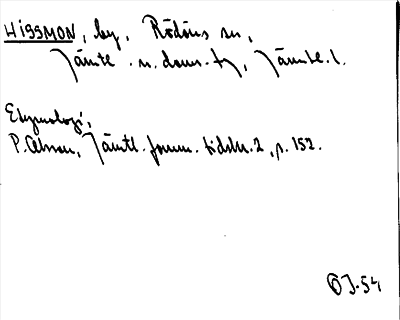 HISSMON, by, Rödöns sn,
Jämtl. n. doms. tg, Jämtl. l.
Etymologi,
P. Olsson, Jämtl. fornm. tidskr. 2, p. 152.
ÖJ.54